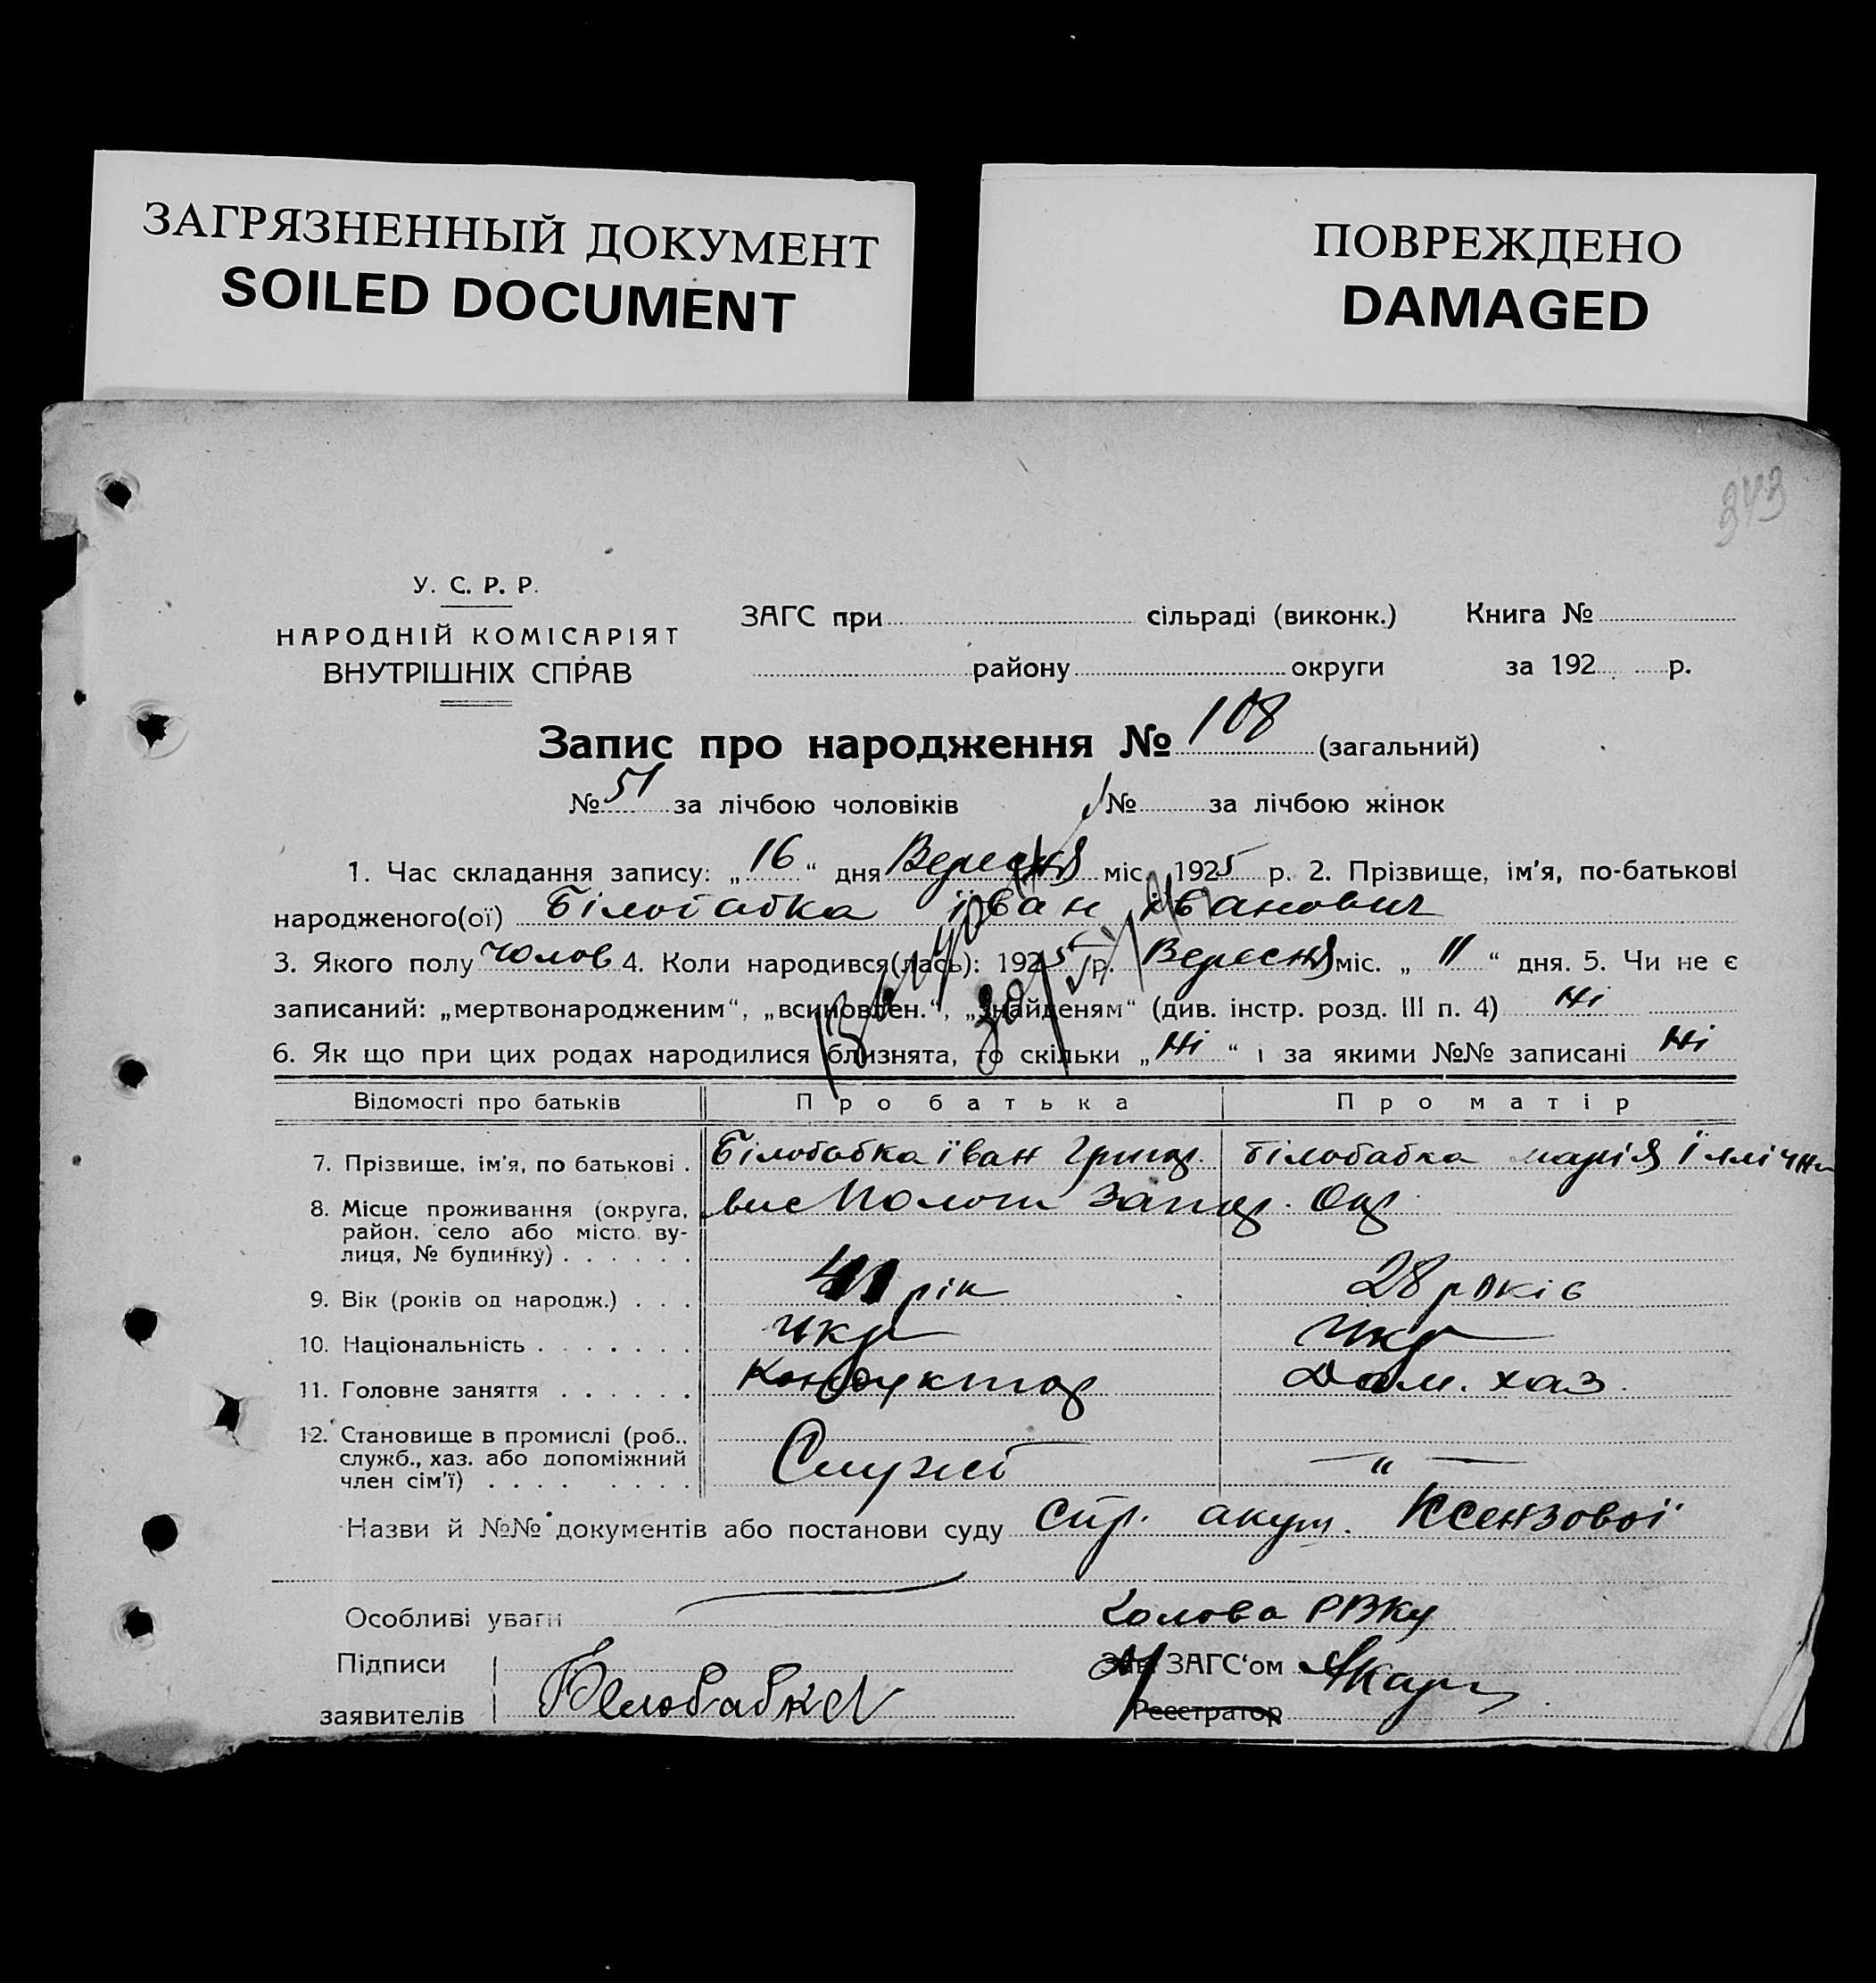 ЗАГРЯЗНЕННЫЙ ДОКУМЕНТ
SOILED DOCUMENT
ПОВРЕЖДЕНО
DAMAGED
343
У. С. Р. Р.
НАРОДНІЙ КОМІСАРІЯТ
ВНУТРІШНІХ СПРАВ
ЗАГС при сільраді (виконк.) Книга №
району округи за 192 р.
Запис про народження № 108 (загальний)
№ 51 за лічбою чоловіків № за лічбою жінок
1. Час складання запису: „16“ дня Вересня міс. 1925 р. 2. Прізвище, ім'я, по-батькові
народженого(ої) Білобабка Їван Їванович
3. Якого полу чолов 4. Коли народився(лась): 1925 р. Вересня міс. „11“ дня. 5. Чи не є
записаний: „мертвонародженим“, „всиновлен.“, „знайденям“ (див. інстр. розд. III п. 4) Ні
6. Як що при цих родах народилися близнята, то скільки „Ні“ і за якими №№ записані Ні
Відомості про батьків Про батька Про матір
7. Прізвище, ім'я, по батькові . Білобабка Їван Григор. Білобабка Марія Їллічна
8. Місце проживання (округа, район, село або місто, вулиця, № будинку) . . . . . . Пологи Запор. Окр.
9. Вік (років од народж.) . . . 41 рік 28 років
10. Національність . . . . . . . Укр Укр
11. Головне заняття . . . . . . Кондуктор Дом. хаз.
12. Становище в промислі (роб., служб., хаз. або допоміжний член сім'ї) . . . . . . . . Служб — " —
Назви й №№ документів або постанови суду Спр. акуш. Ксензової
Особливі уваги Голова РВКу
Підписи Зав. ЗАГС‘ом
заявителів Белобабка Реєстратор